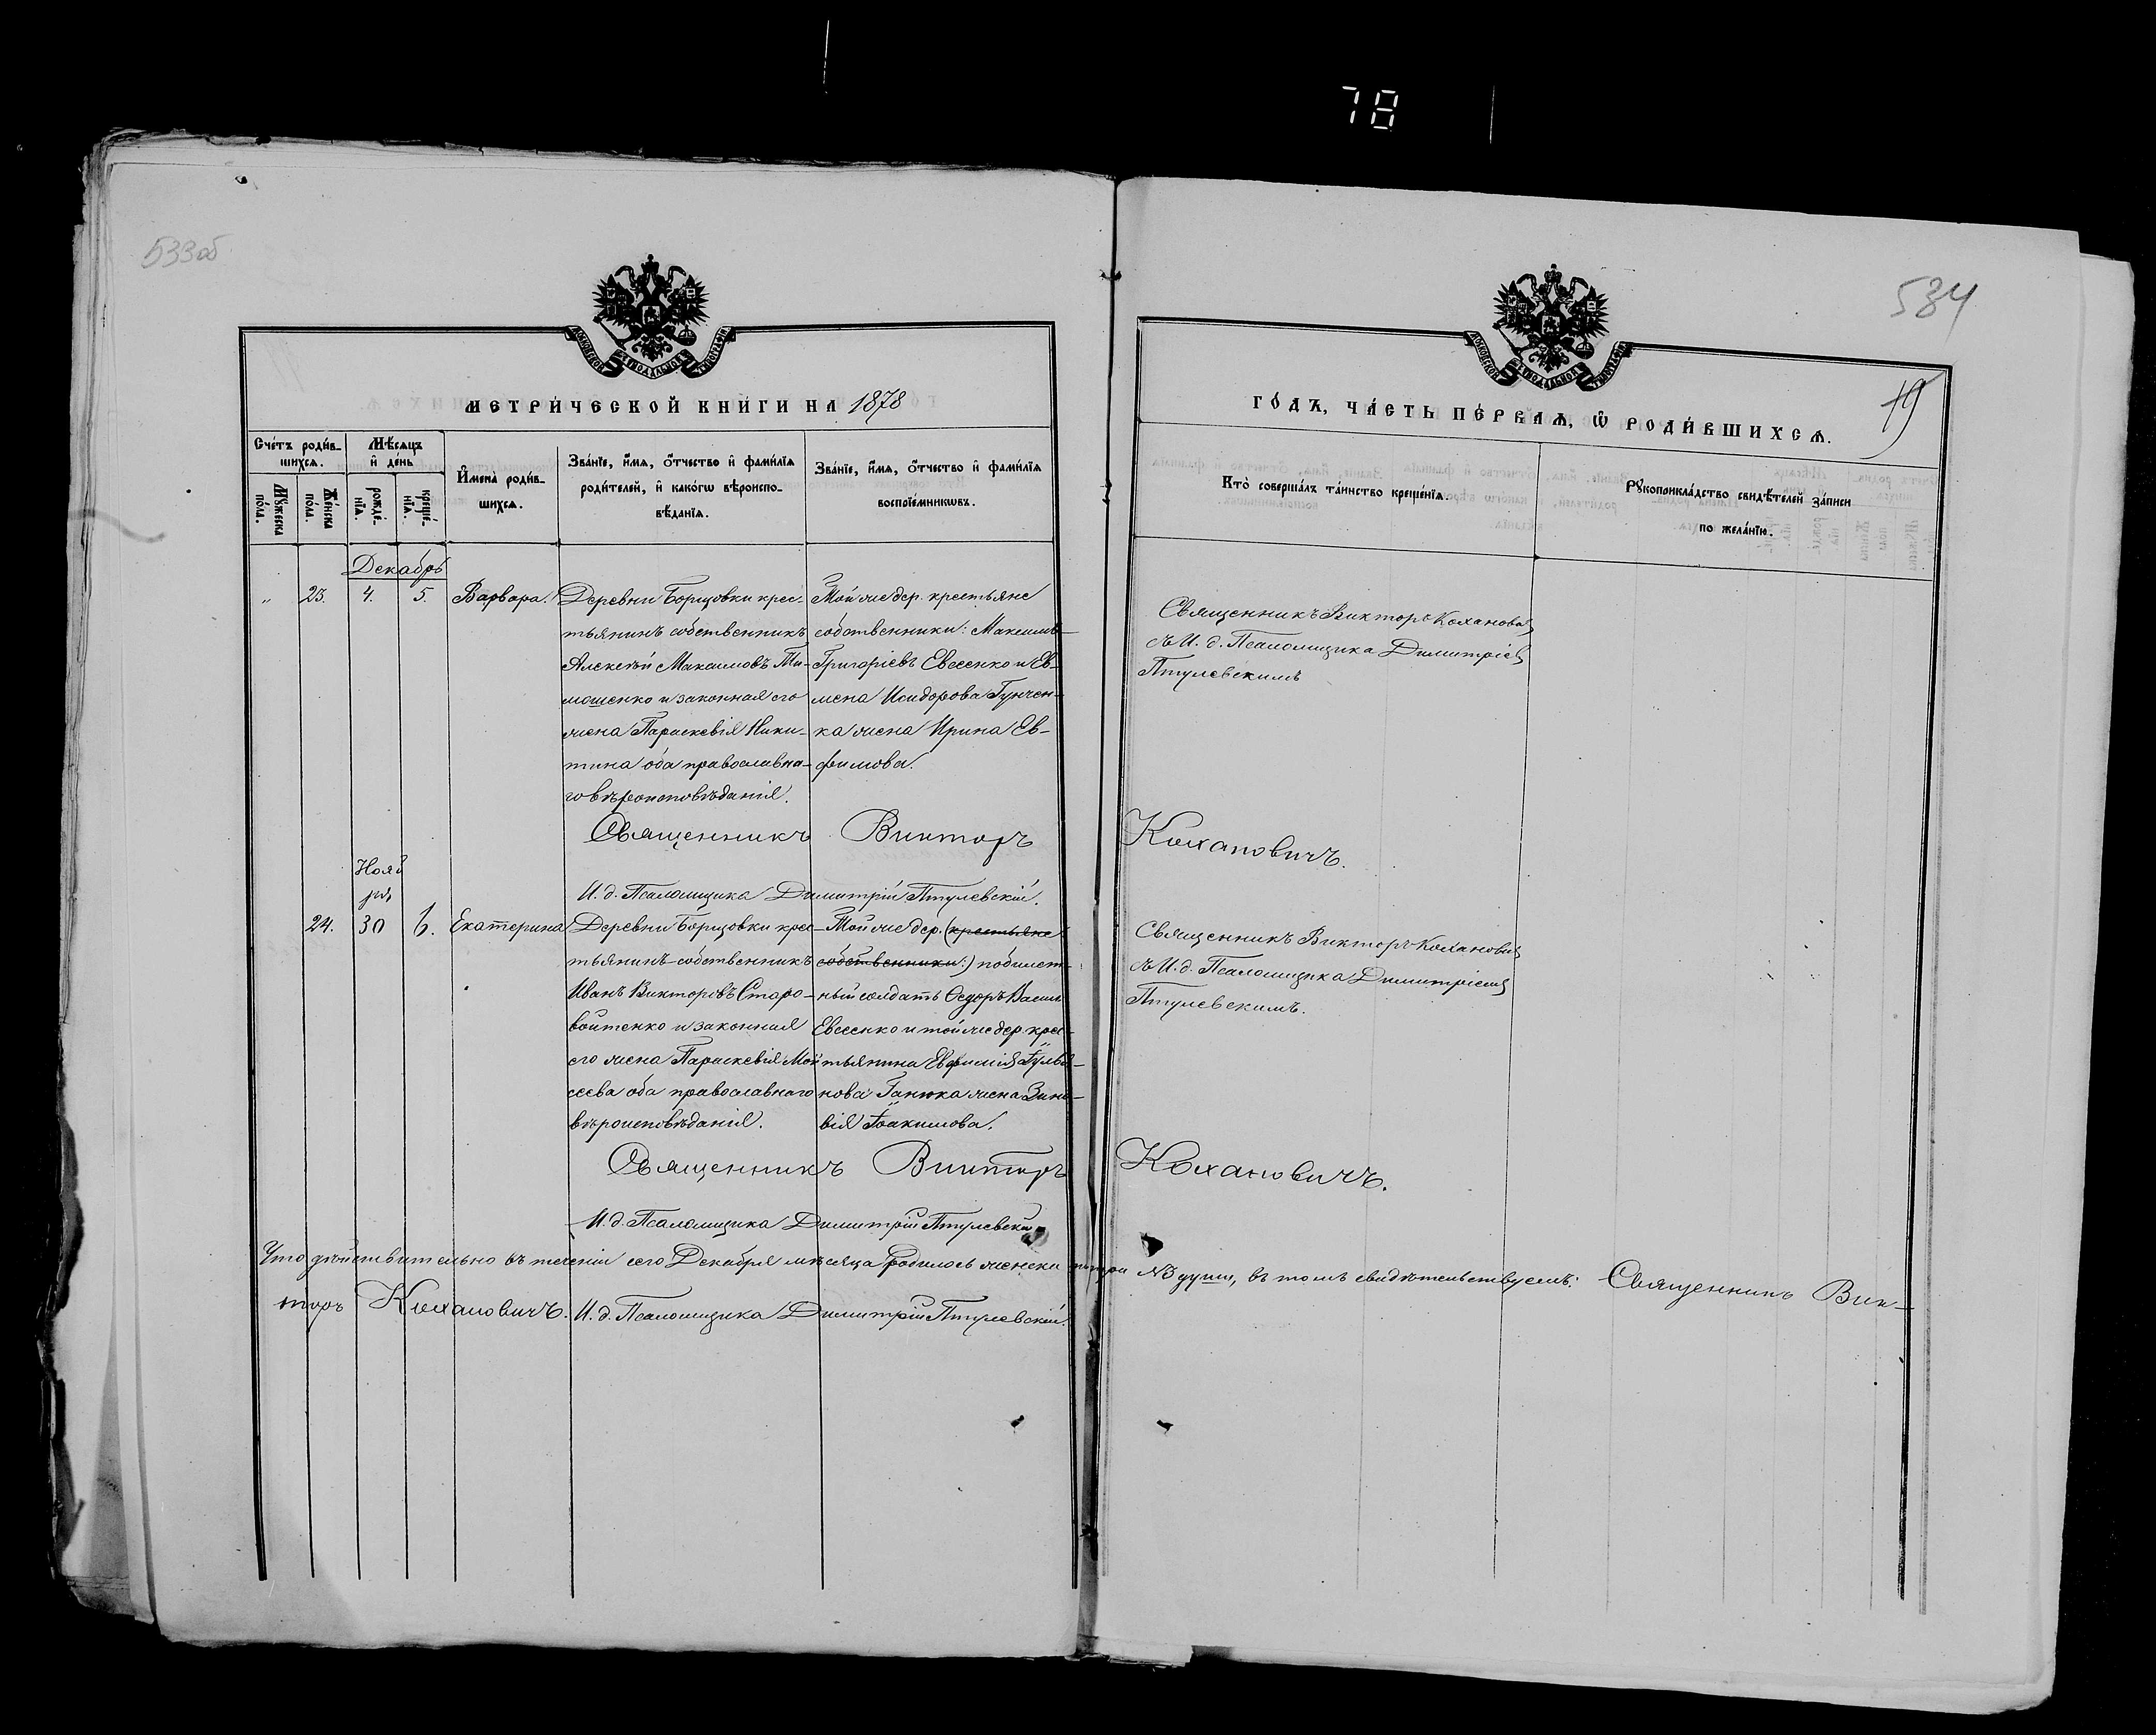 78
533об
534
19
МОСКОВСКОЙ СѴНОДАЛЬНОЙ ТИПОГРАФІИ
МОСКОВСКОЙ СѴНОДАЛЬНОЙ ТИПОГРАФІИ
МЕТРИ́ЧЕСКОЙ КНИ́ГИ НА 1878
ГО́ДЪ, ЧА́СТЬ ПЕ́РВАѦ, Ѡ РОДИ́ВШИХСѦ.
Сче́тъ роди́в-
шихсѧ.
Мѣ́сѧцъ
и де́нь
Мꙋ́жеска
по́ла.
Же́нска
по́ла.
рожде́-
нїѧ.
креще́-
нїѧ.
Имена̀ роди́в-
шихсѧ.
Зва́нїе, и́мѧ, ѻ́тчество и фами́лїѧ
роди́телей, и како́гѡ вѣроиспо-
вѣ́данїѧ.
Зва́нїе, и́мѧ, ѻ́тчество и фами́лїѧ
воспрїе́мникѡвъ.
Кто̀ соверша́лъ та́инство креще́нїѧ.
Рꙋкоприкла́дство свидѣ́телей за́писи
по жела́нїю.
Декабрь
„ 23. 4. 5. Варвара.
Деревни Борщовки крес-
тьянинъ собственникъ
Алексѣй Максимовъ Ти-
мошенко и законная его
жена Параскевія Ники-
тина оба православна-
го вѣроисповѣданія.
Той же дер. крестьяне
собственники: Максимъ
Григоріевъ Евсенко и Ев-
мена Исидорова Гунчен-
ка жена Ирина Ев-
фимова.
Священникъ Викторъ Коханови
съ И. д. Псаломщика Димитріе
Птулевскимъ
Священникъ Викторъ Кохановичъ.
И. д. Псаломщика Димитрій Птулевскій.
Нояб
ря
24. 30 6. Екатерина
Деревни Борщовки крес-
тьянинъ-собственникъ
Иванъ Викторовъ Старо-
войтенко и законная
его жена Параскевія Мой
сеева оба православнаго
вѣроисповѣданія.
Той же дер. (крестьяне
собственники:) побилет-
ный солдатъ Ѳедоръ Васил
Евсенко и той же дер. крес-
тьянина Евфимія
нова Ганжа жена Зино-
вія Іоакимова.
Священникъ Викторъ Коханович
съ И. д. Псаломщика Димитріем
Птулевскимъ.
Священникъ Викторъ Кохановичъ.
И. д. Псаломщика Димитрій Птулевскій
Что дѣйствительно въ теченіи сего Декабря мѣсяца родилось женска пола №3 души, въ томъ свидѣтельствуемъ: Священникъ Вик-
торъ Кохановичъ. И. д. Псаломщика Димитрій Птулевскій.